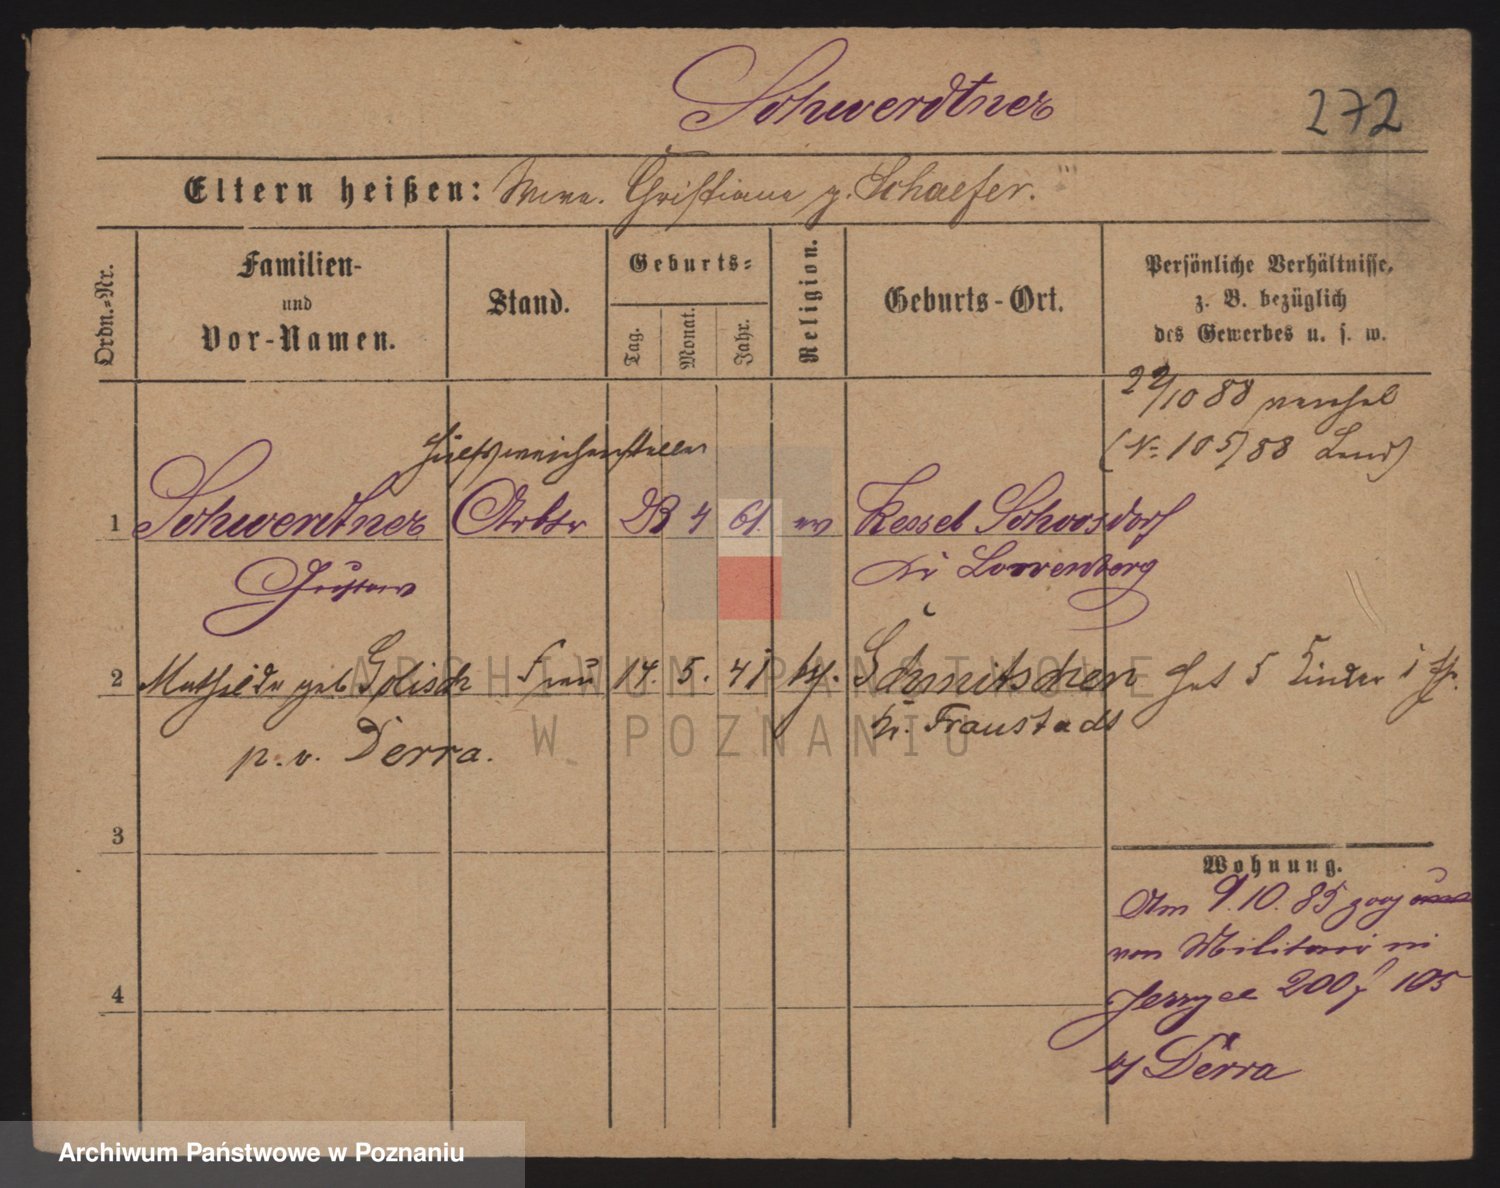 Schwerdtner
272
Eltern heißen: Wwe. Christiane g. Schaefer.
Ordn.-Nr.
Familien-
und
Vor-Namen.
Stand.
Geburts-
Tag.
Monat.
Jahr.
Religion.
Geburts-Ort.
Persönliche Verhältnisse,
z. B. bezüglich
des Gewerbes u. s. w.
22/10 88
(No 105/88
Hülfsweichensteller
1 Schwerdtner Arbtr 28 4 61. ev Kessel Schosdorf
Gustav Kr Lowenberg
2 Mathilde geb Golisch Frau 14. 5. 41 kth. Schmitschen Hat 5 Kinder
p. v. Derra. Kr. Fraustadt
3
4
Wohnung.
Am 9.10.85 zog
von Militair in
Jerzyce 200 f 105
b/ Derra
ARCHIWUM PAŃSTWOWE
W POZNANIU
Archiwum Państwowe w Poznaniu